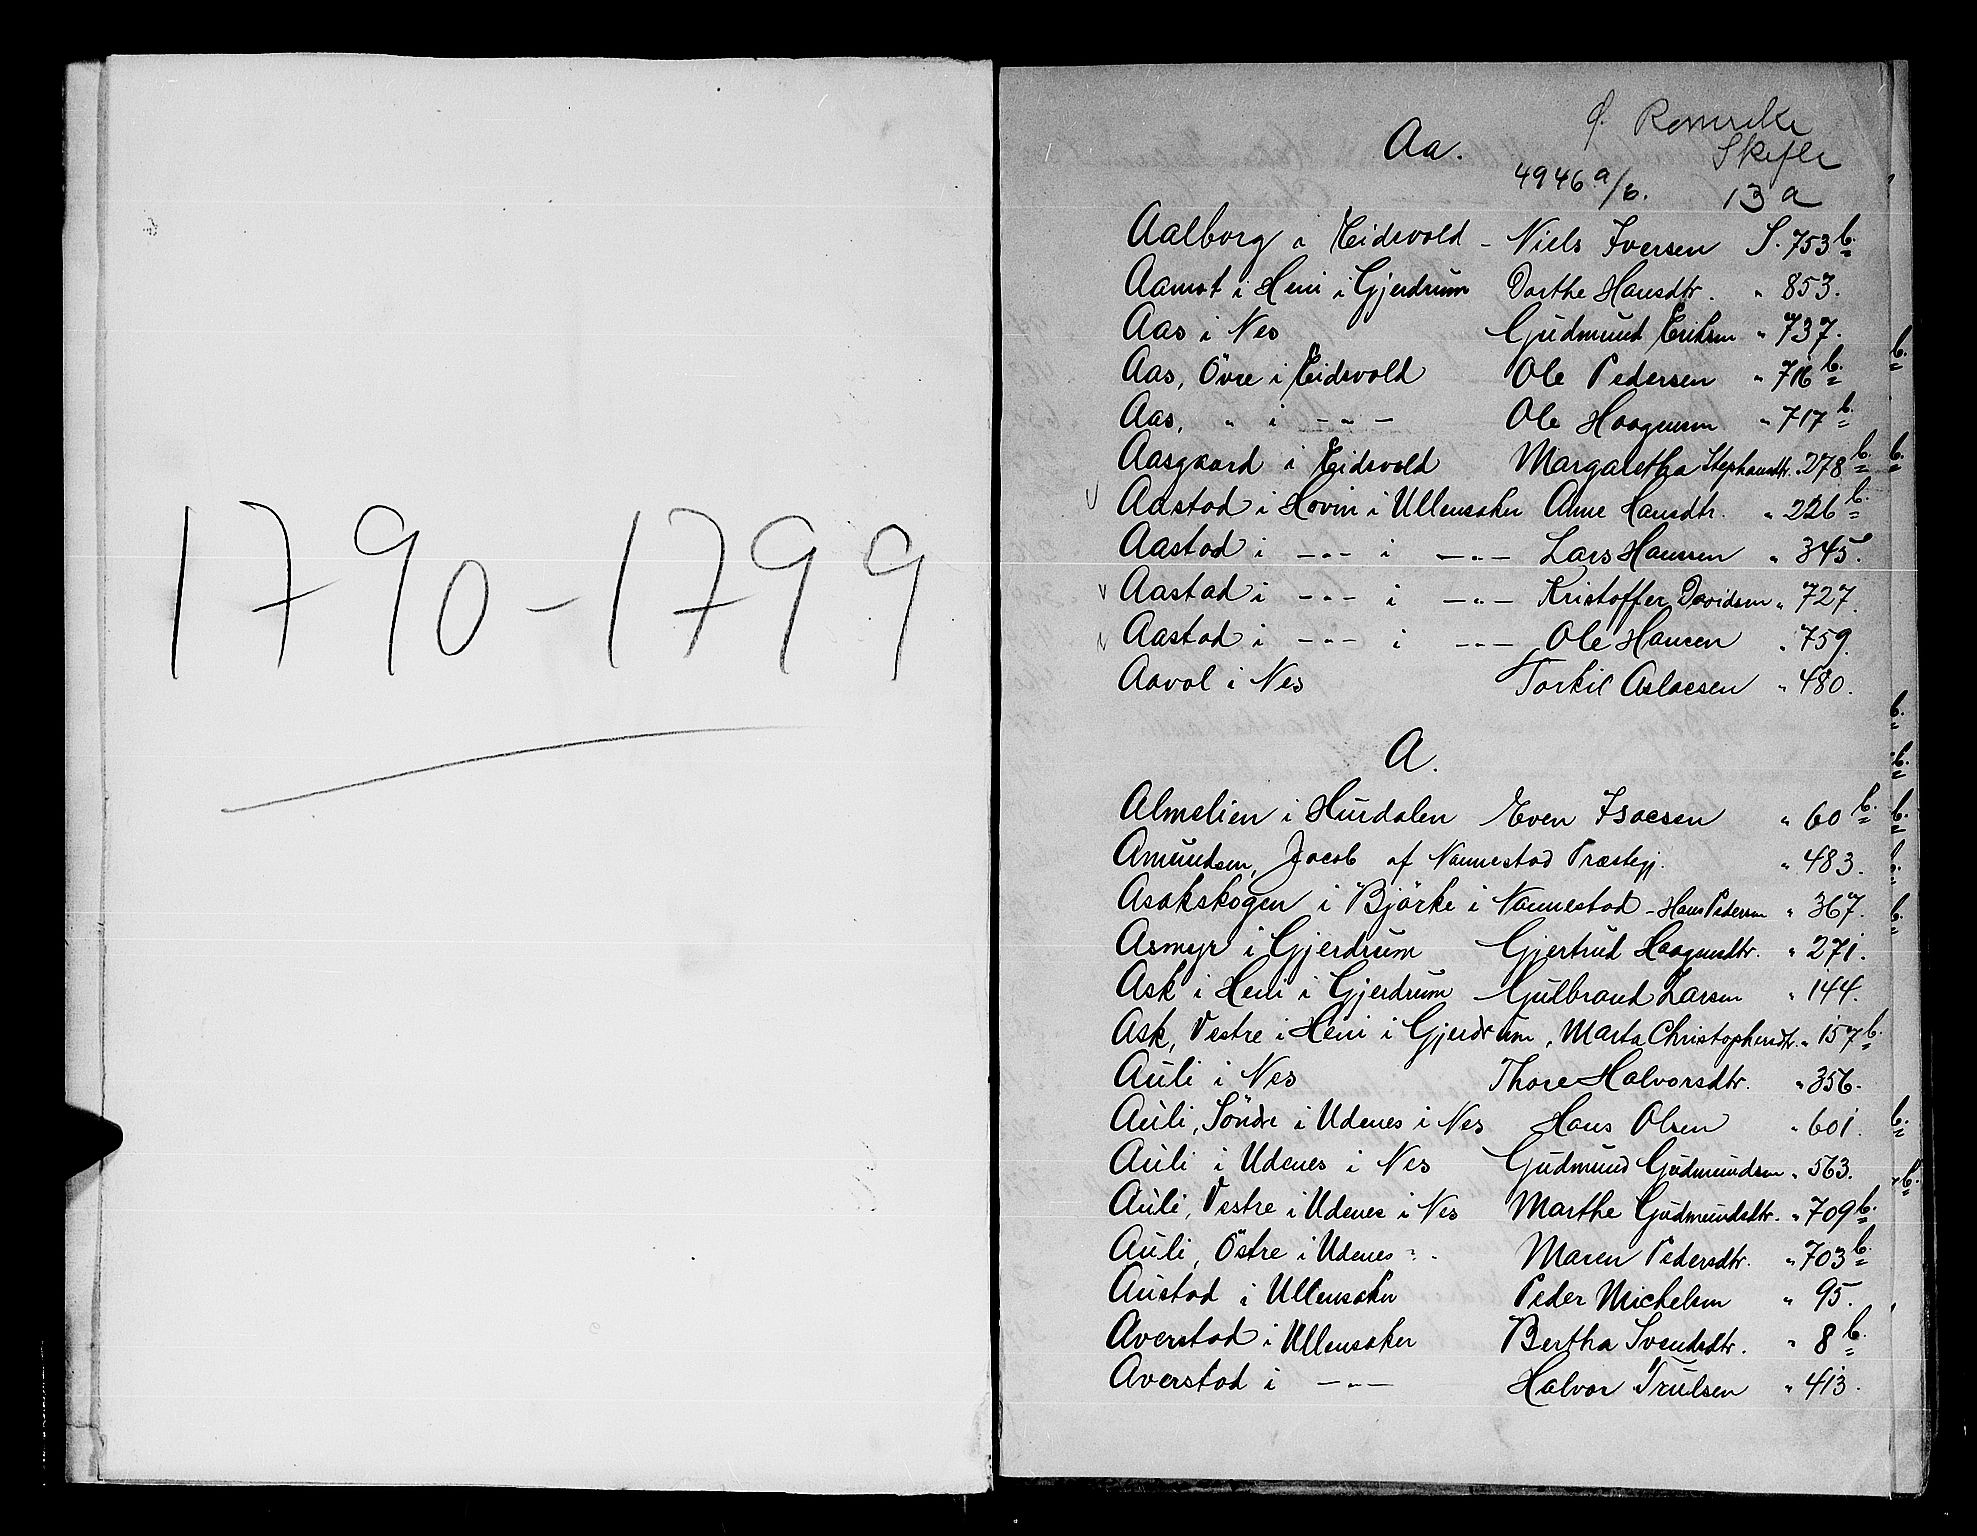 1790-1799
Ø. Romerike
Skifte
Aa.
4946 a/b. 13 a
Aalborg i Eidsvold - Niels Iversen S. 753 b.
Aamot i Heni i Gjerdrum Dorthe Hansdtr. " 853.
Aas i Nes Gudmund Eriksen " 737.
Aas, Övre i Eidsvold Ole Pedersen " 716 b.
Aas, " i -"- Ole Haagensen " 717 b.
Aasgaard i Eidsvold Margaretha Stephansdtr. " 278 b.
Aastad i Hovin i Ullensaker Anne Hansdtr. " 226 b.
Aastad i -"- i -"- Lars Hansen " 345.
Aastad i -"- i -"- Kristoffer Davidsen " 727.
Aastad i -"- i -"- Ole Hansen " 759.
Aavol i Nes Torkil Aslacsen " 480.
A.
Almelien i Hurdalen Even Isacsen " 60 b.
Amundsen, Jacob af Nannestad Præstegj. " 483.
Asakskogen i Björke i Nannestad - Hans Pedersen " 367.
Asmyr i Gjerdrum Gjertrud Haagensdtr. " 271.
Ask i Heni i Gjerdrum Gudbrand Larsen " 144.
Ask, Vestre i Heni i Gjerdrum, Marta Christophersdtr. " 157 b.
Auli i Nes Thore Halvorsdtr. " 356.
Auli, Söndre i Udenes i Nes Hans Olsen " 601.
Auli i Udenes i Nes Gudmund Gudmundsen " 563.
Auli, Vestre i Udenes i Nes Marthe Gudmundsdtr. " 709 b.
Auli, Östre i Udenes " - Maren Pedersdtr. " 703 b.
Austad i Ullensaker Peder Michelsen " 95.
Averstad i Ullensaker Bertha Svendsdtr. " 8 b.
Averstad i -"- Halvor Trulsen " 413.